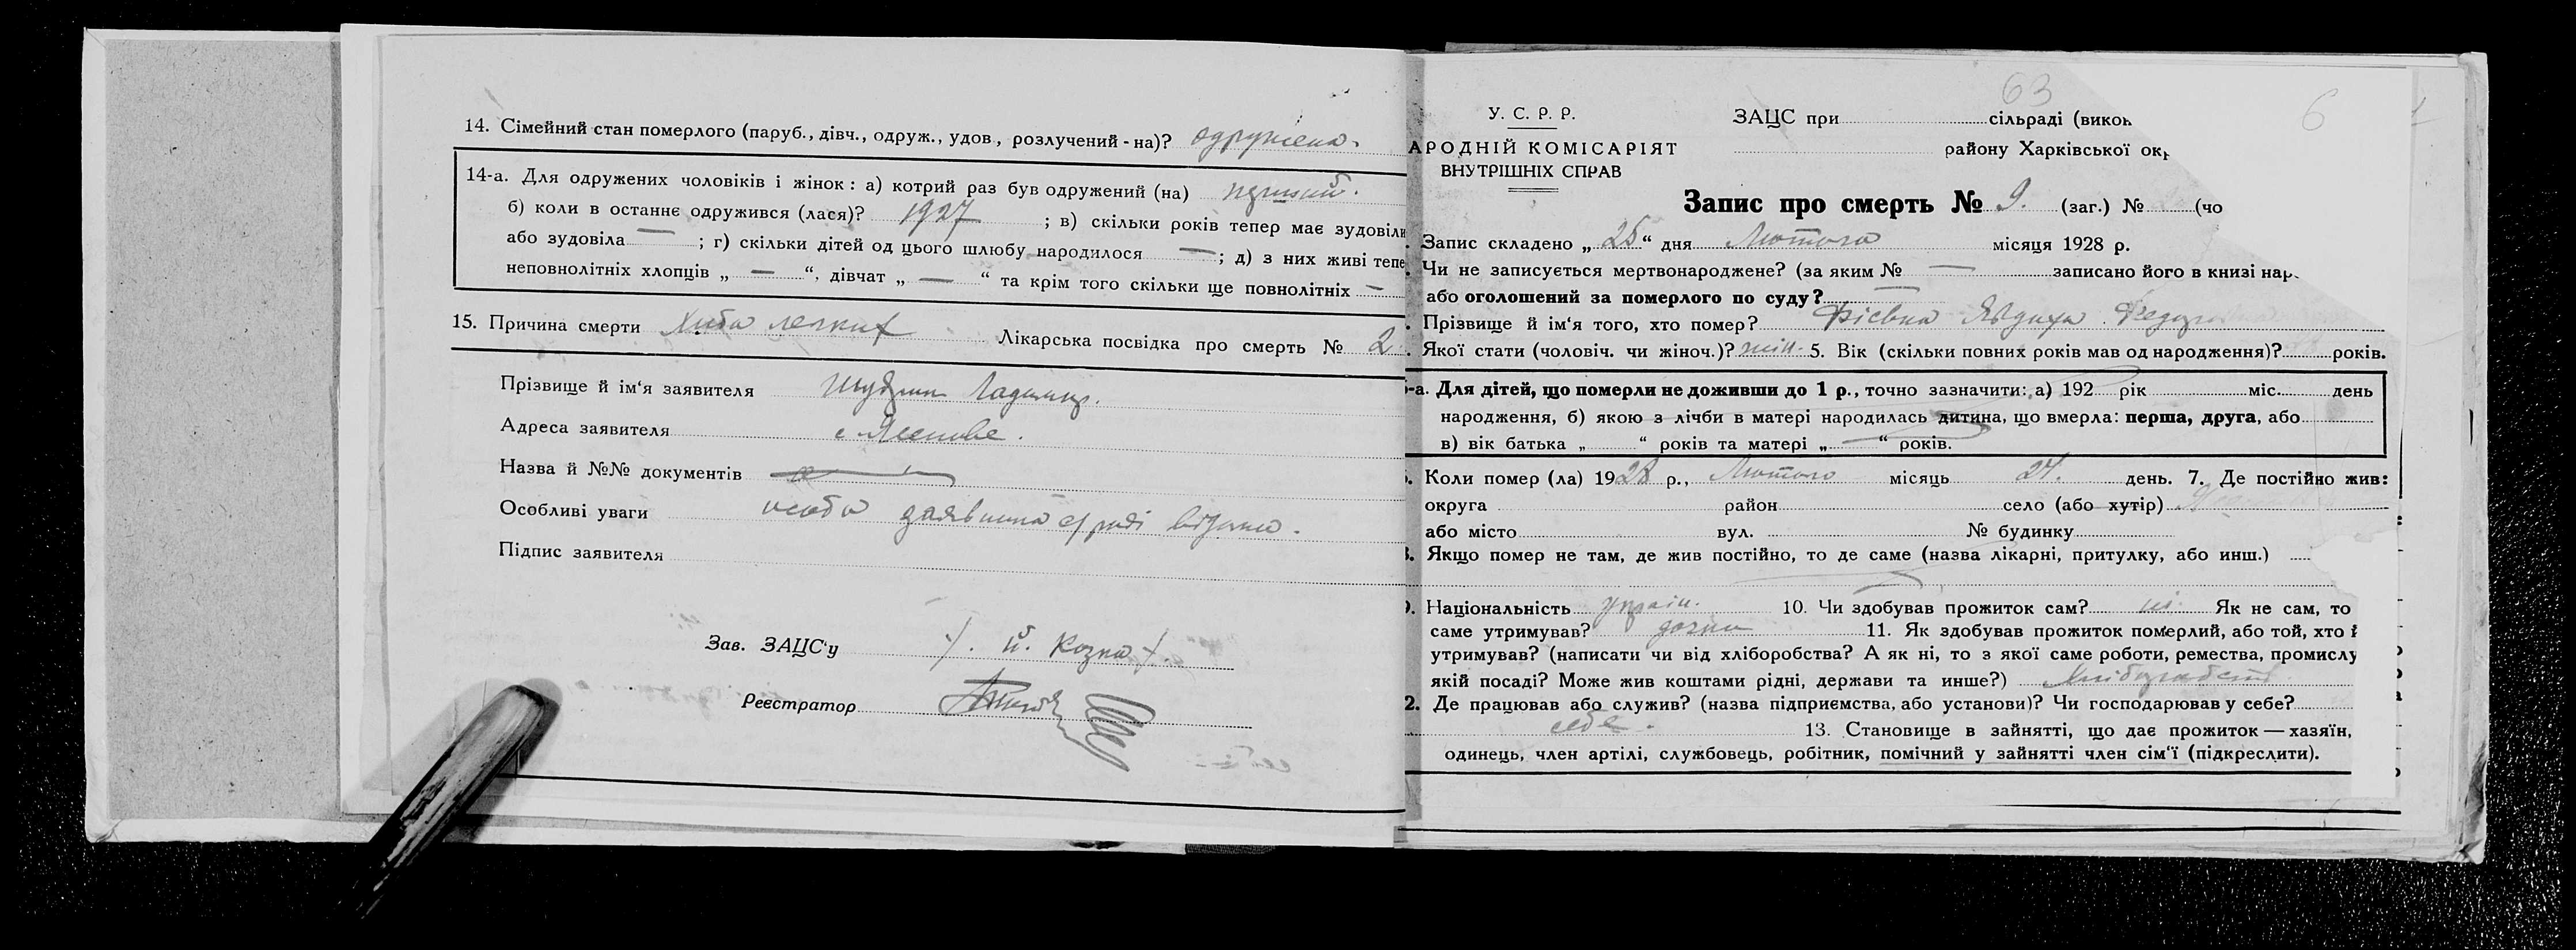 14. Сімейний стан померлого (паруб., дівч., одруж., удов., розлучений-на)? одружена.
14-а. Для одружених чоловіків і жінок: а) котрий раз був одружений (на) перший.
б) коли в останнє одружився (лася)? 1927 ; в) скільки років тепер має зудовіли
або зудовіла — ; г) скільки дітей од цього шлюбу народилося — ; д) з них живі тепе
неповнолітніх хлопців „ — “, дівчат „ — “ та крім того скільки ще повнолітніх —
15. Причина смерти Хиба легких Лікарська посвідка про смерть № 2
Прізвище й ім‘я заявителя
Адреса заявителя с.
Назва й №№ документів
Особливі уваги особа заявника с/раді відома.
Підпис заявителя
Зав. ЗАЦС‘у
Реєстратор
63
6
У. С. Р. Р.
АРОДНІЙ КОМІСАРІЯТ
ВНУТРІШНІХ СПРАВ
ЗАЦС при сільраді (викон
району Харківської окр
Запис про смерть № 9. (заг.) № (чо
Запис складено „ 25 “ дня Лютого місяця 1928 р.
Чи не записується мертвонароджене? (за яким № — записано його в книзі нар
або оголошений за померлого по суду? —
Прізвище й ім‘я того, хто помер? Явдиха
Якої стати (чоловіч. чи жіноч.)? жін. 5. Вік (скільки повних років мав од народження)? років.
-а. Для дітей, що померли не доживши до 1 р., точно зазначити: а) 192 рік міс. день
народження, б) якою з лічби в матері народилась дитина, що вмерла: перша, друга, або
в) вік батька „ “ років та матері „ “ років.
Коли помер (ла) 1928 р., Лютого місяць 24. день. 7. Де постійно жив:
округа район село (або хутір)
або місто вул. № будинку
Якщо помер не там, де жив постійно, то де саме (назва лікарні, притулку, або инш.)
Національність україн. 10. Чи здобував прожиток сам? ні Як не сам, то
саме утримував? 11. Як здобував прожиток померлий, або той, хто й
утримував? (написати чи від хліборобства? А як ні, то з якої саме роботи, ремества, промислу
якій посаді? Може жив коштами рідні, держави та инше?) Хліборобство
2. Де працював або служив? (назва підприємства, або установи)? Чи господарював у себе?
себе. 13. Становище в зайнятті, що дає прожиток — хазяїн,
одинець, член артілі, службовець, робітник, помічний у зайнятті член сім‘ї (підкреслити).